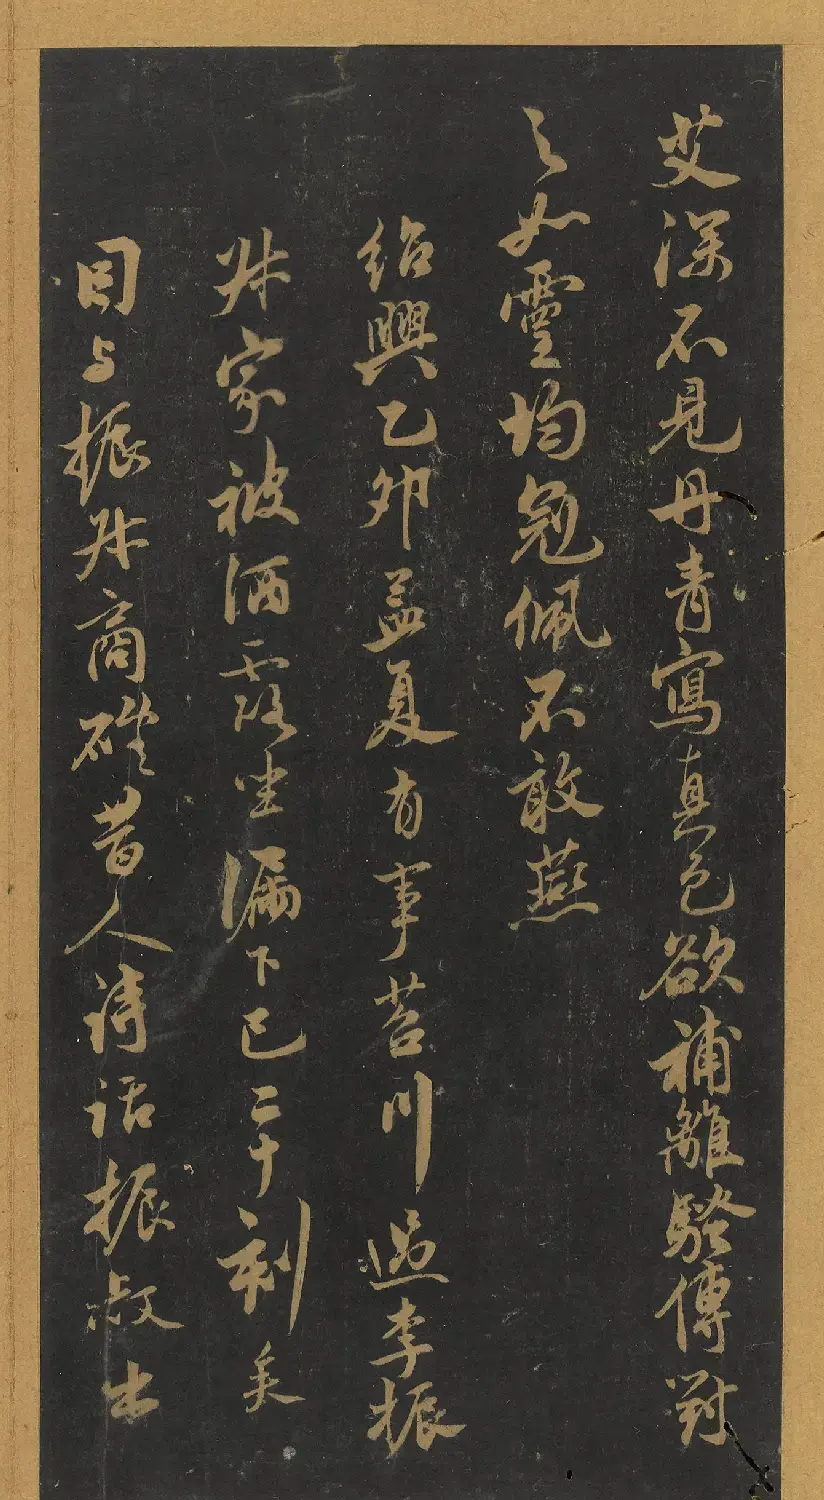 艾深不見丹青寫真色欲補離騷傳對
之如靈均冠佩不敢燕
紹興乙卯孟夏有事苕川過李振
叔家被酒露坐漏下已二十刻矣
因与振叔商礭昔人詩話振叔出